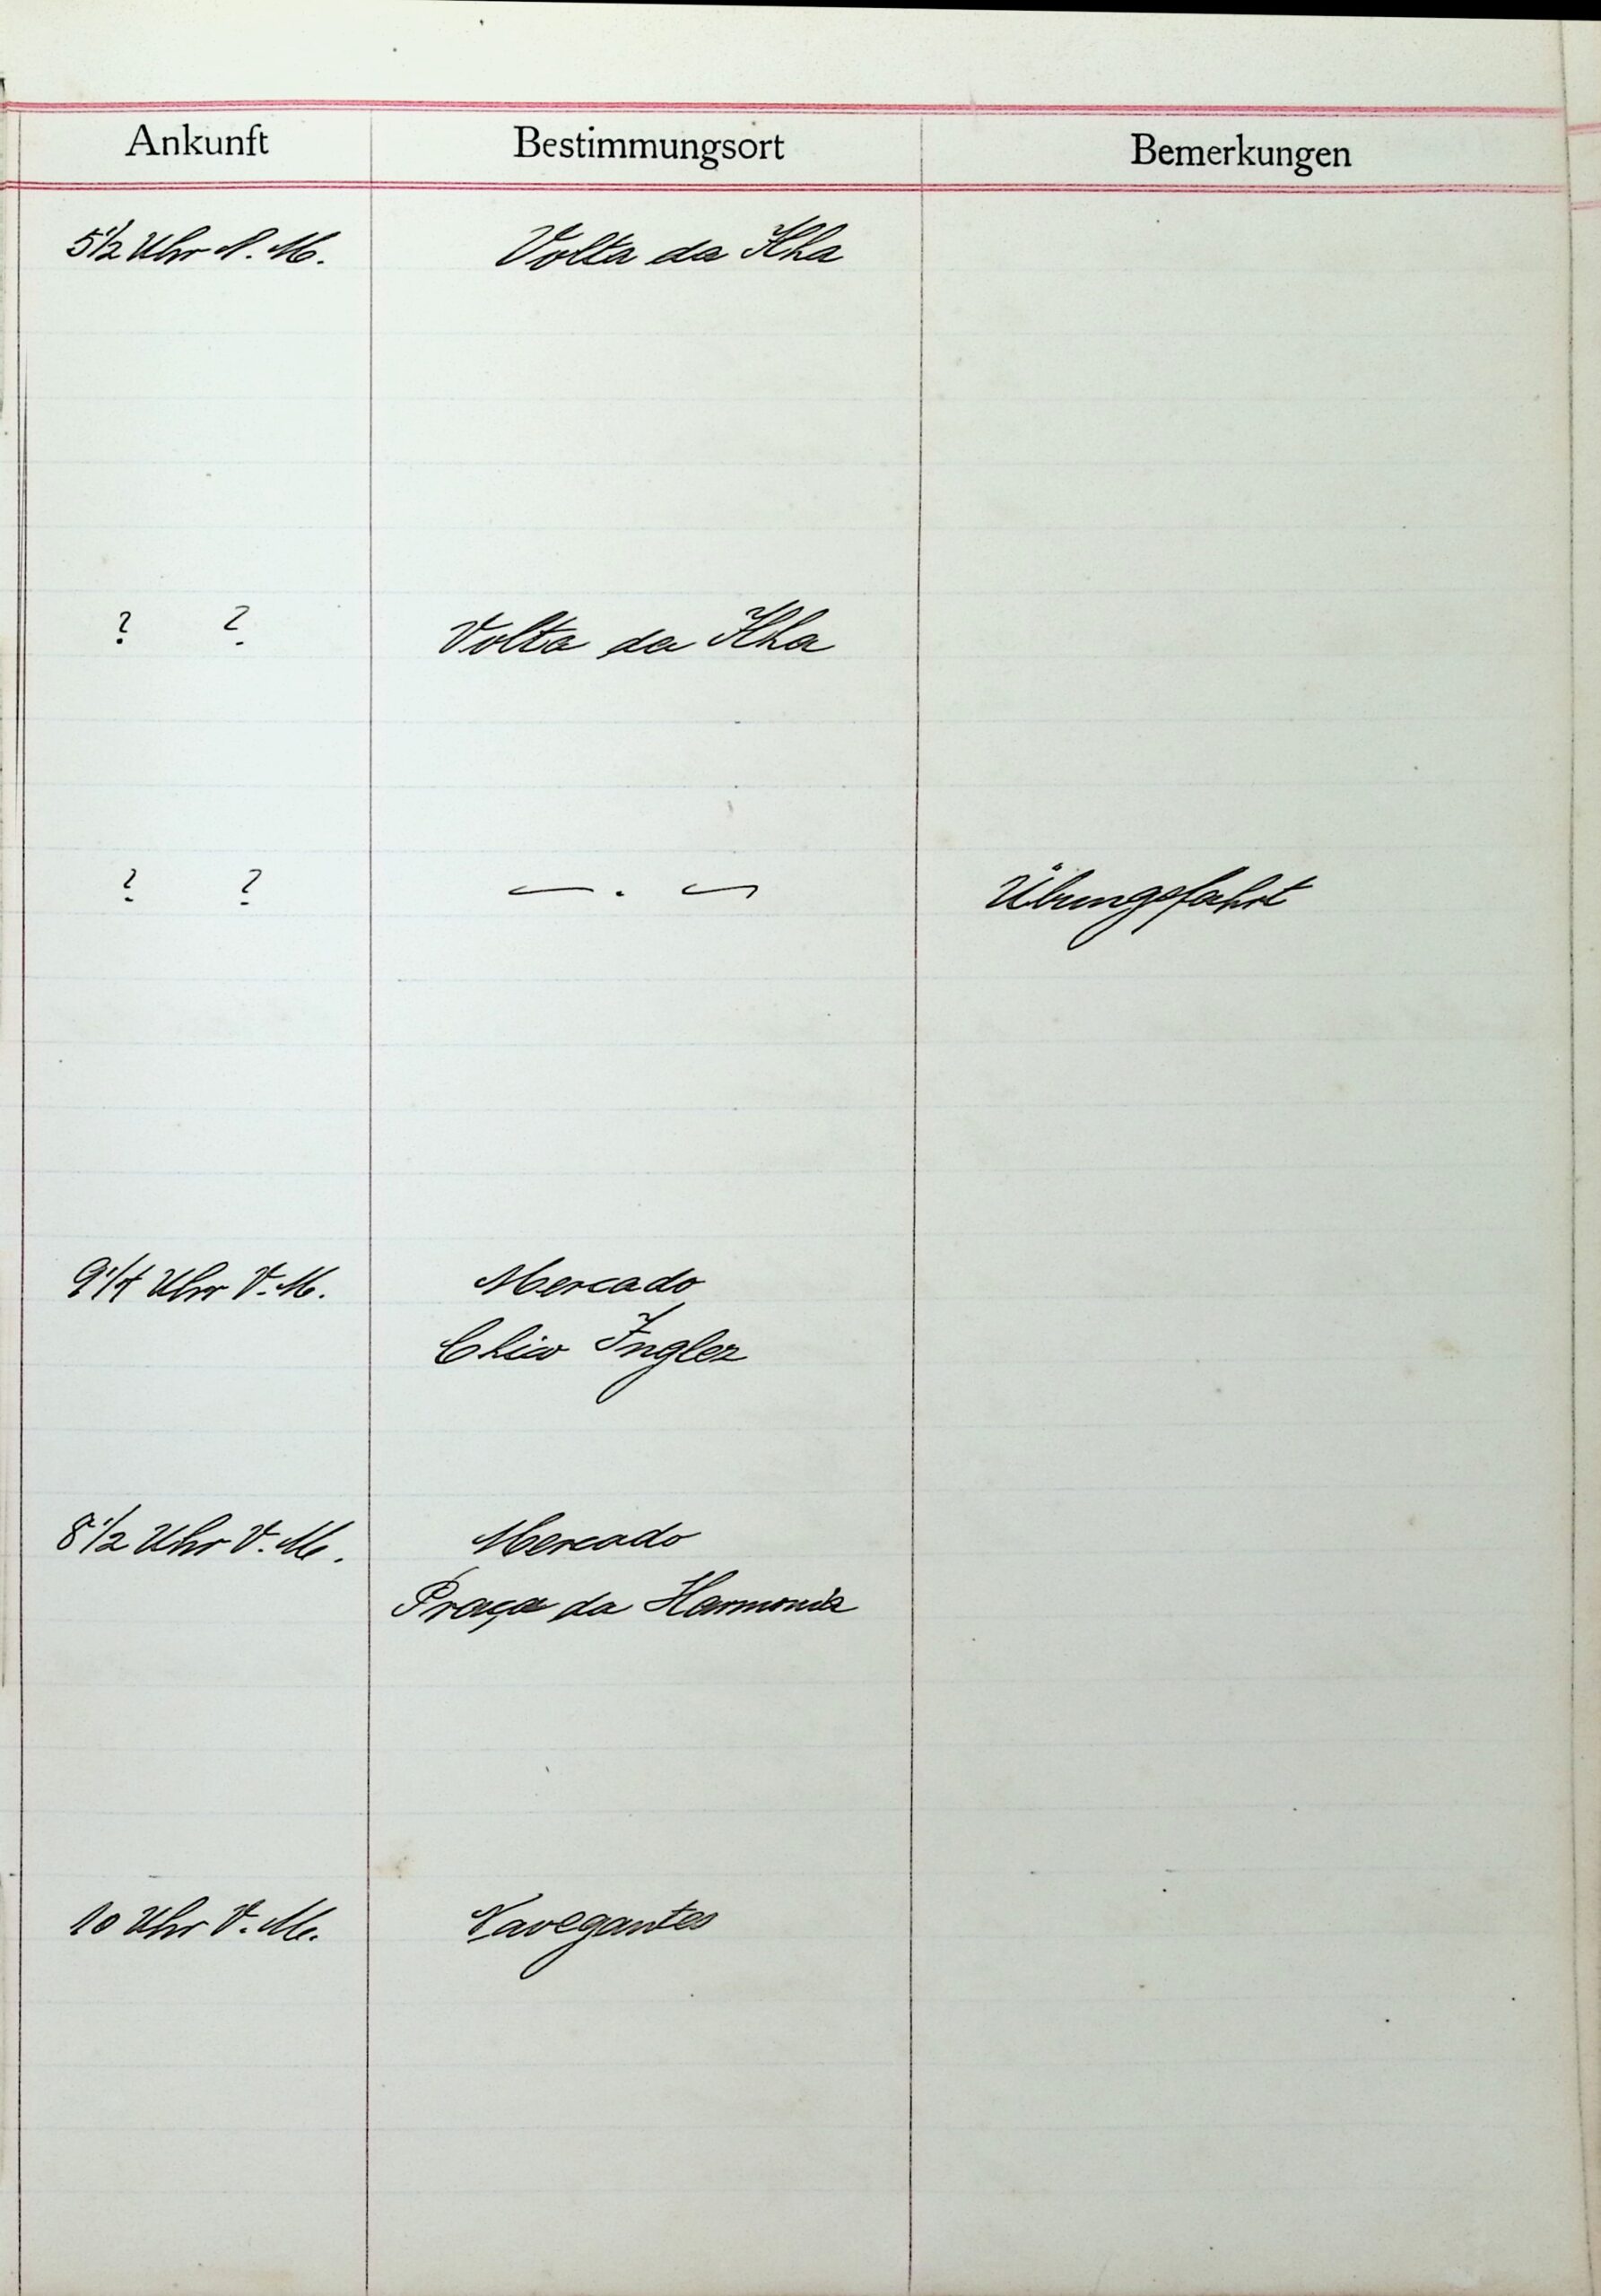 Ankunft Bestimmungsort Bemerkungen
5 1/2 Uhr N. M. Volta da Ilha
? ? Volta da Ilha
? ? — . — Übungsfahrt
9 1/4 Uhr V. M. Mercado
Chico Inglez
8 1/2 Uhr V. M. Mercado
Praça da Harmonia
10 Uhr V. M. Navegantes